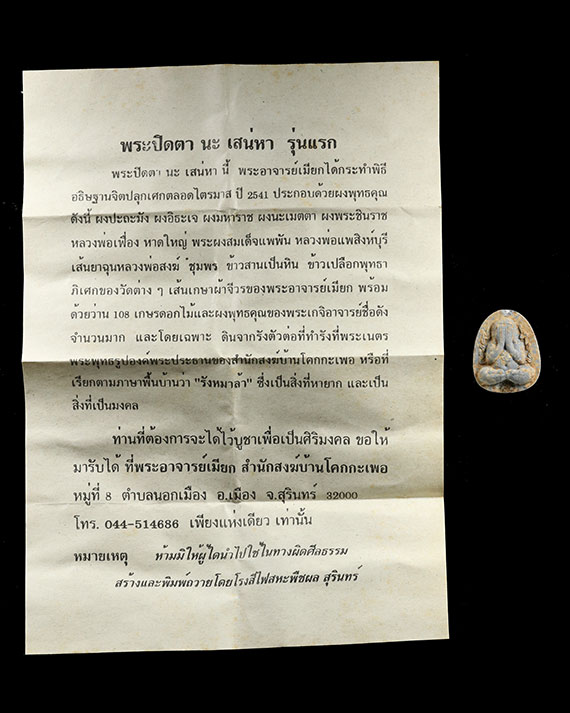 พระปิดตา นะ เสน่หา รุ่นแรก
พระปิดตา นะ เสน่หา นี้ พระอาจารย์เมียกได้กระทำพิธี
อธิษฐานจิตปลุกเศกตลอดไตรมาส ปี 2541 ประกอบด้วยผงพุทธคุณ
ดังนี้ ผงปะถะมัง ผงอิธะเจ ผงมหาราช ผงนะเมตตา ผงพระชินราช
หลวงพ่อเฟื่อง หาดใหญ่ พระผงสมเด็จแพพัน หลวงพ่อแพสิงห์บุรี
เส้นยาฉุนหลวงพ่อสงฆ์ ชุมพร ข้าวสานเป็นหิน ข้าวเปลือกพุทธา
ภิเศกของวัดต่าง ๆ เส้นเกษาผ้าจีวรของพระอาจารย์เมียก พร้อม
ด้วยว่าน 108 เกษรดอกไม้และผงพุทธคุณของพระเกจิอาจารย์ชื่อดัง
จำนวนมาก และโดยเฉพาะ ดินจากรังตัวต่อที่ทำรังที่พระเนตร
พระพุทธรูปองค์พระประธานของสำนักสงฆ์บ้านโคกกะเพอ หรือที่
เรียกตามภาษาพื้นบ้านว่า "รังหมาล้า" ซึ่งเป็นสิ่งที่หายาก และเป็น
สิ่งที่เป็นมงคล
ท่านที่ต้องการจะได้ไว้บูชาเพื่อเป็นศิริมงคล ขอให้
มารับได้ ที่พระอาจารย์เมียก สำนักสงฆ์บ้านโคกกะเพอ
หมู่ที่ 8 ตำบลนอกเมือง อ.เมือง จ.สุรินทร์ 32000
โทร. 044-514686 เพียงแห่งเดียว เท่านั้น
หมายเหตุ ห้ามมิให้ผู้ใดนำไปใช้ในทางผิดศีลธรรม
สร้างและพิมพ์ถวายโดยโรงสีไฟสหะพืชผล สุรินทร์